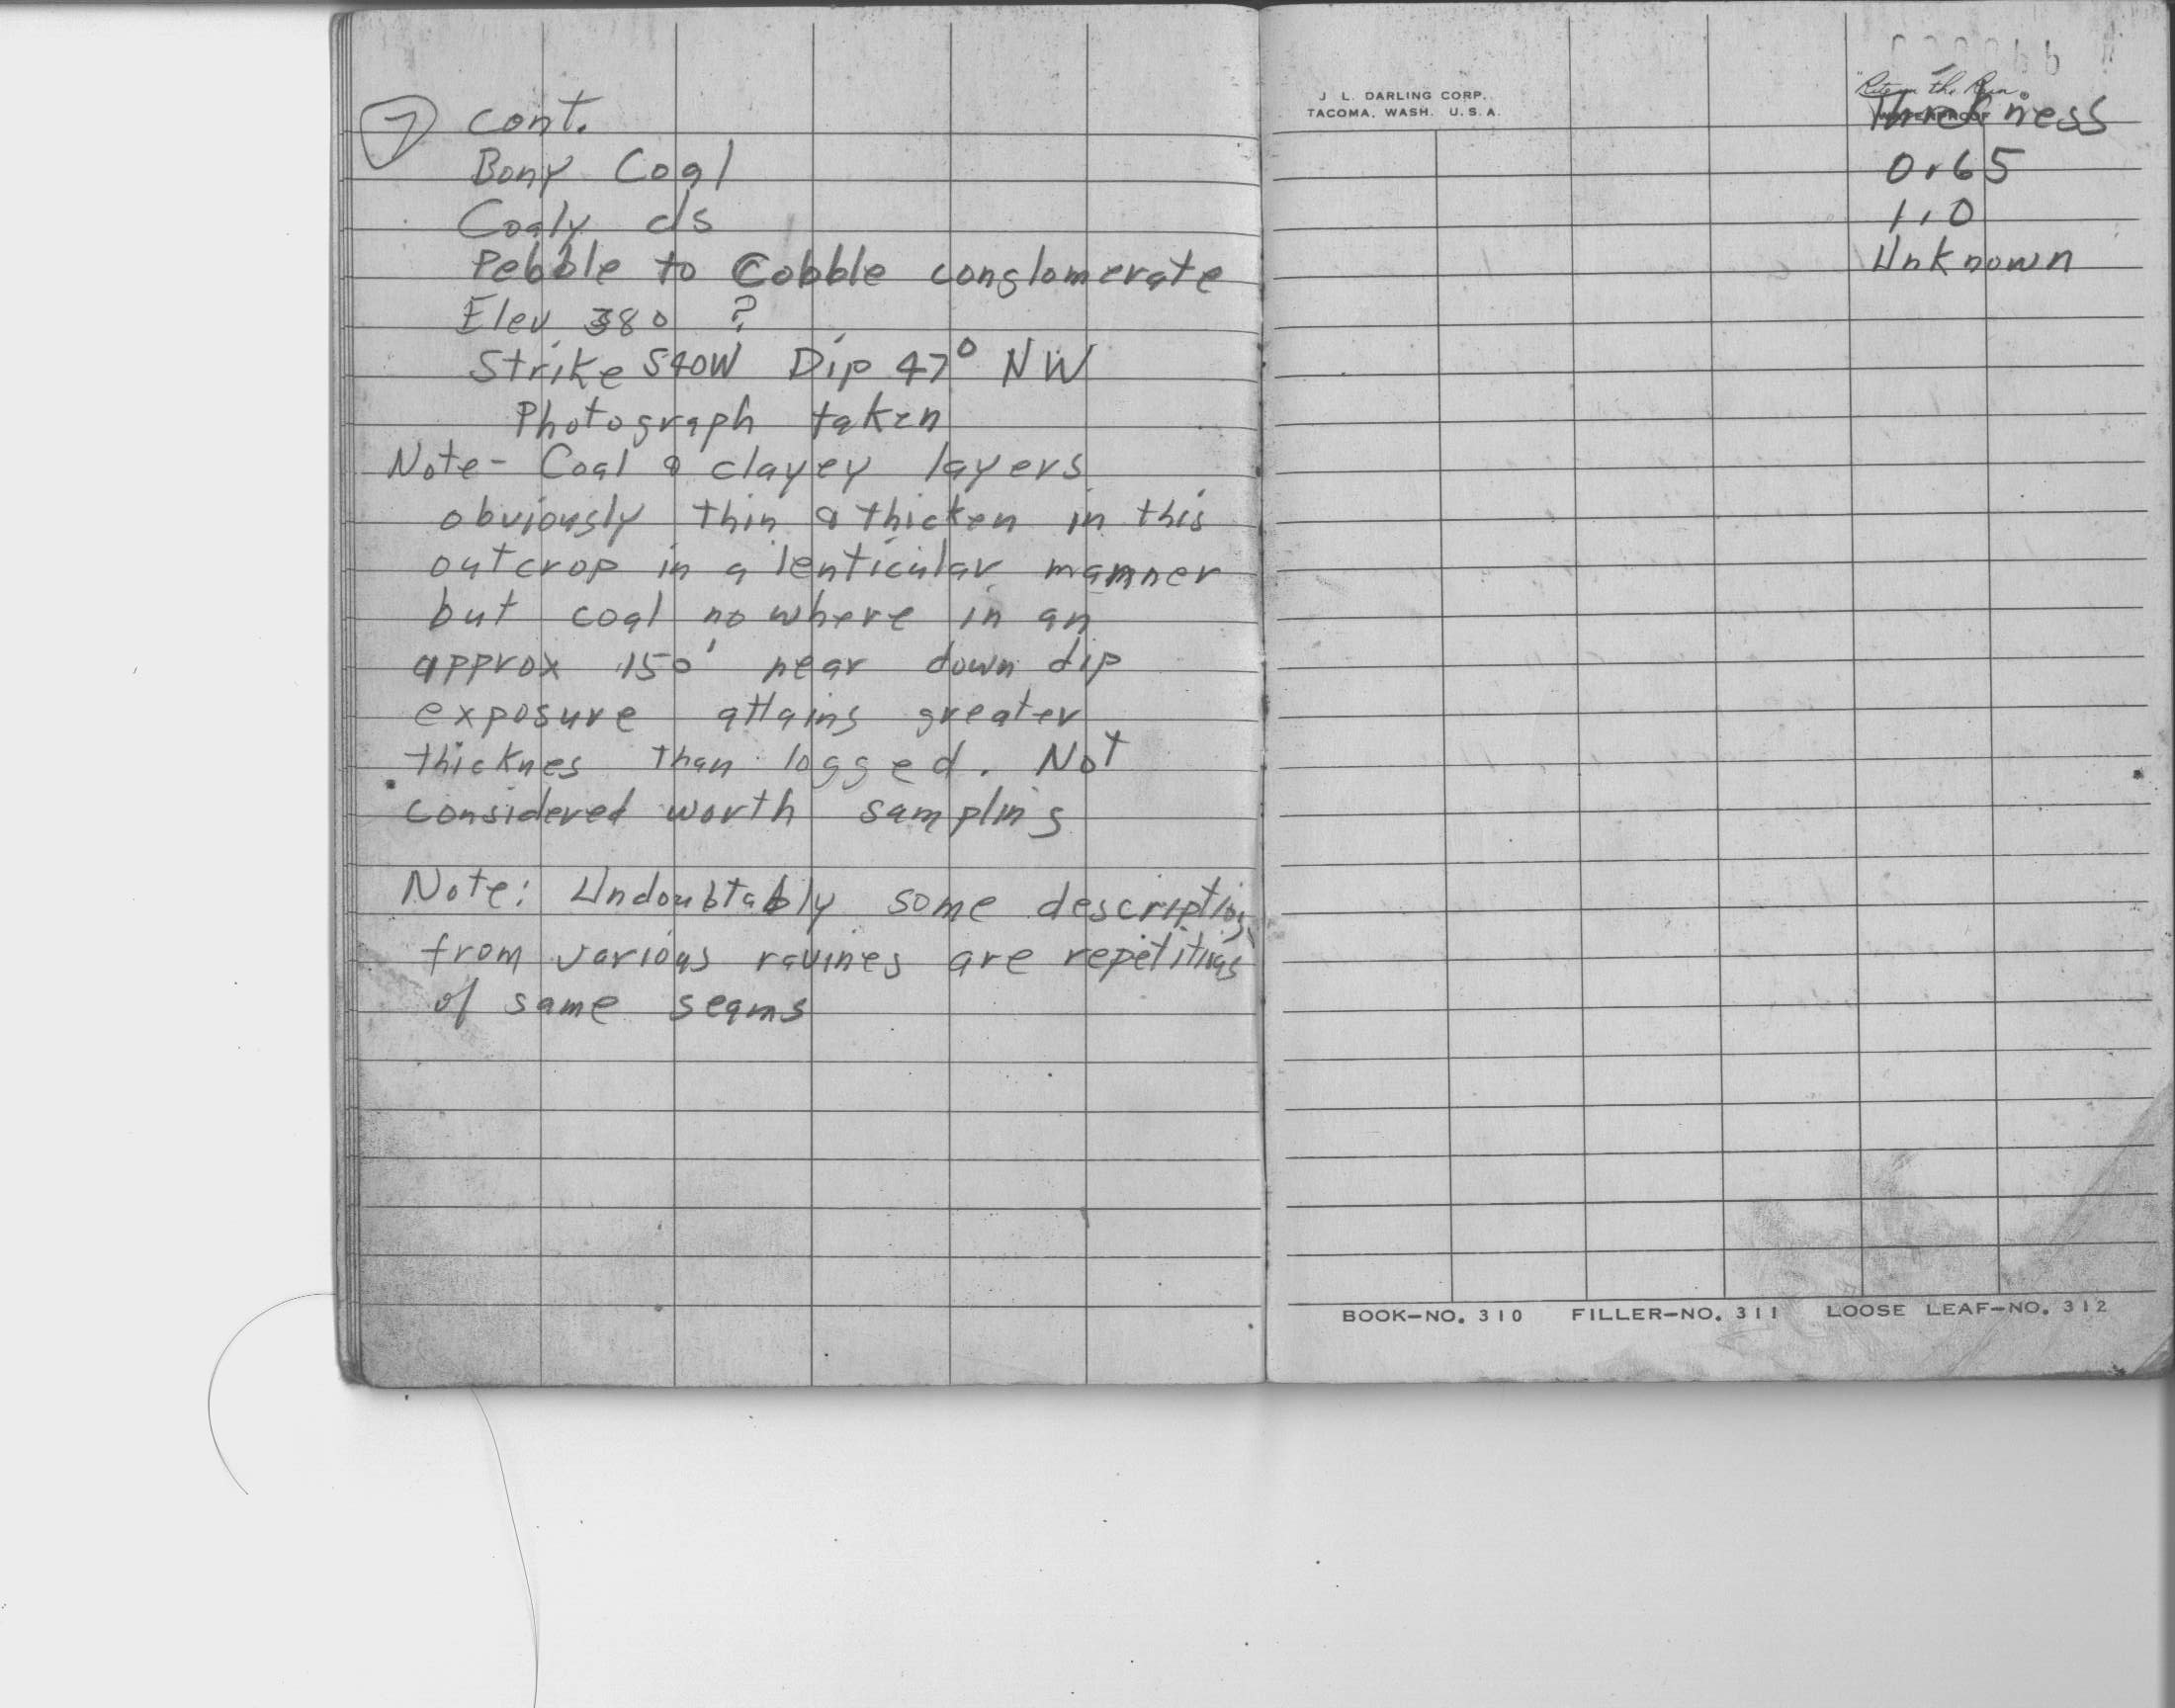 7 cont.
Bony Coal
Coaly cls
Pebble to Cobble conglomerate
Elev 380 ?
Strike S40W Dip 47° NW
Photograph taken
Note- Coal & clayey layers
obviously thin & thicken in this
outcrop in a lenticular manner
but coal nowhere in an
approx 150' near down dip
exposure attains greater
thicknes than logged. Not
considered worth sampling
Note: Undoubtably some descriptions
from various ravines are repetitions
of same seams
J. L. DARLING CORP.
TACOMA, WASH. U.S.A.
"Rite in the Rain"
Thickness
0.65
1.0
Unknown
BOOK-NO. 310 FILLER-NO. 311 LOOSE LEAF-NO. 312